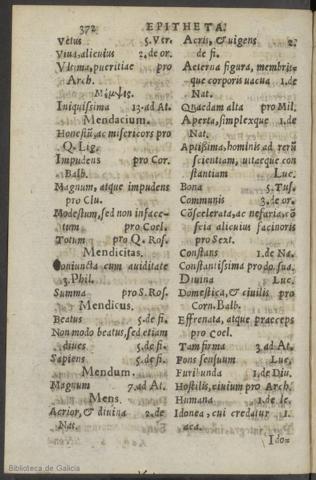 372 EPITHETA.
Vetus 5. Ver.
Vna, alicuius 2. de or.
Vltima, pueritiae pro
Arch.
Iniquissima 13. ad At.
Mendacium.
Honestū, ac misericors pro
Q. Lig.
Impudens pro Cor.
Balb.
Magnum, atque impudens
pro Clu.
Modestum, sed non infacetum
pro Coel.
Totum pro Q. Ros.
Mendicitas.
Coniuncta cum auiditate
3. Phil.
Summa pro S. Ros.
Mendicus.
Beatus 5. de fi.
Non modo beatus, sed etiam
diues 5. de fi.
Sapiens 5. de fi.
Mendum.
Magnum 7. ad At.
Mens.
Acrior, & diuina 2. de
Nat.
Acris, & uigens 2.
de fi.
Aeterna figura, membrisque
corporis uacua 1. de
Nat.
Quaedam alta pro Mil.
Aperta, simplexque 1. de
Nat.
Aptissima, hominis ad rerū
scientiam, uitaeque constantiam
Luc.
Bona 5. Tus.
Communis 3. de or.
Cōscelerata, ac nefaria, cōscia
alicuius facinoris
pro Sext.
Constans 1. de Na.
Constantissima pro do. sua.
Diuina Luc.
Domestica, & ciuilis pro
Corn. Balb.
Effrenata, atque praeceps
pro Coel.
Tam firma 3. ad At.
Fons sensuum Luc.
Furibunda 1. de Diu.
Hostilis, ciuium pro Arch.
Humana 1. de le.
Idonea, cui credatur 1.
aca.
Ido=
Biblioteca de Galicia